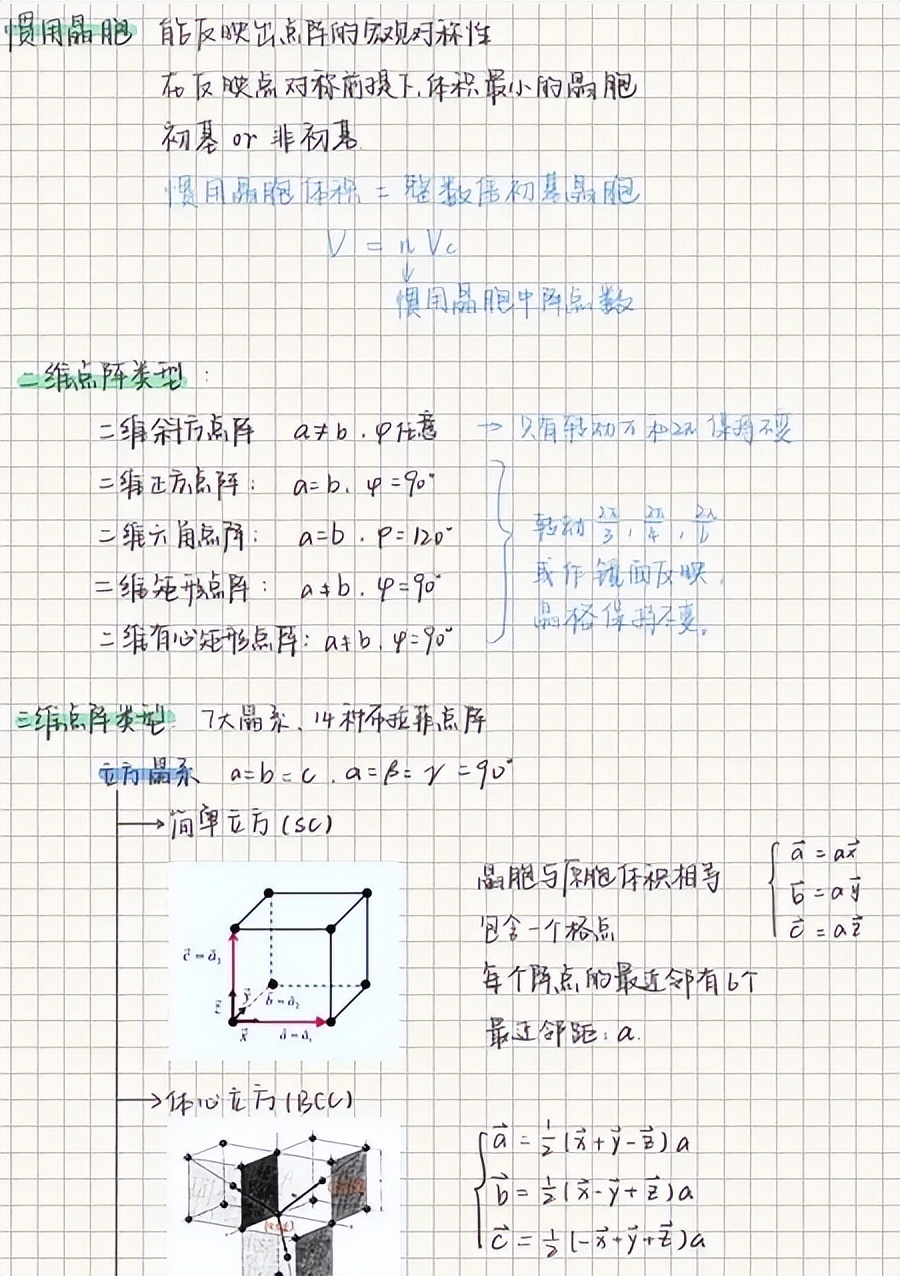 惯用晶胞 能反映出点阵的宏观对称性
在反映点对称前提下,体积最小的晶胞
初基 or 非初基
惯用晶胞体积 = 整数倍初基晶胞
V = n Vc
↓
惯用晶胞中阵点数
二维点阵类型:
二维斜方点阵 a≠b . φ任意 → 只有转动π和2π保持不变
二维正方点阵: a=b. φ=90°
二维六角点阵: a=b . φ=120°
二维矩形点阵: a≠b . φ=90°
二维有心矩形点阵: a≠b . φ=90°
转动 2π/3, 2π/4, 2π/6
或作镜面反映,
晶格保持不变。
三维点阵类型: 7大晶系、14种布拉菲点阵
立方晶系 a=b=c . α=β=γ=90°
→简单立方(SC)
c⃗=a⃗₃
z⃗ y⃗ b⃗=a⃗₂
x⃗ a⃗=a⃗₁
晶胞与原胞体积相等
包含一个格点
每个阵点的最近邻有6个
最近邻距: a.
a⃗ = ax⃗
b⃗ = ay⃗
c⃗ = az⃗
→体心立方(BCC)
a⃗ = ½(x⃗+y⃗-z⃗)a
b⃗ = ½(x⃗-y⃗+z⃗)a
c⃗ = ½(-x⃗+y⃗+z⃗)a